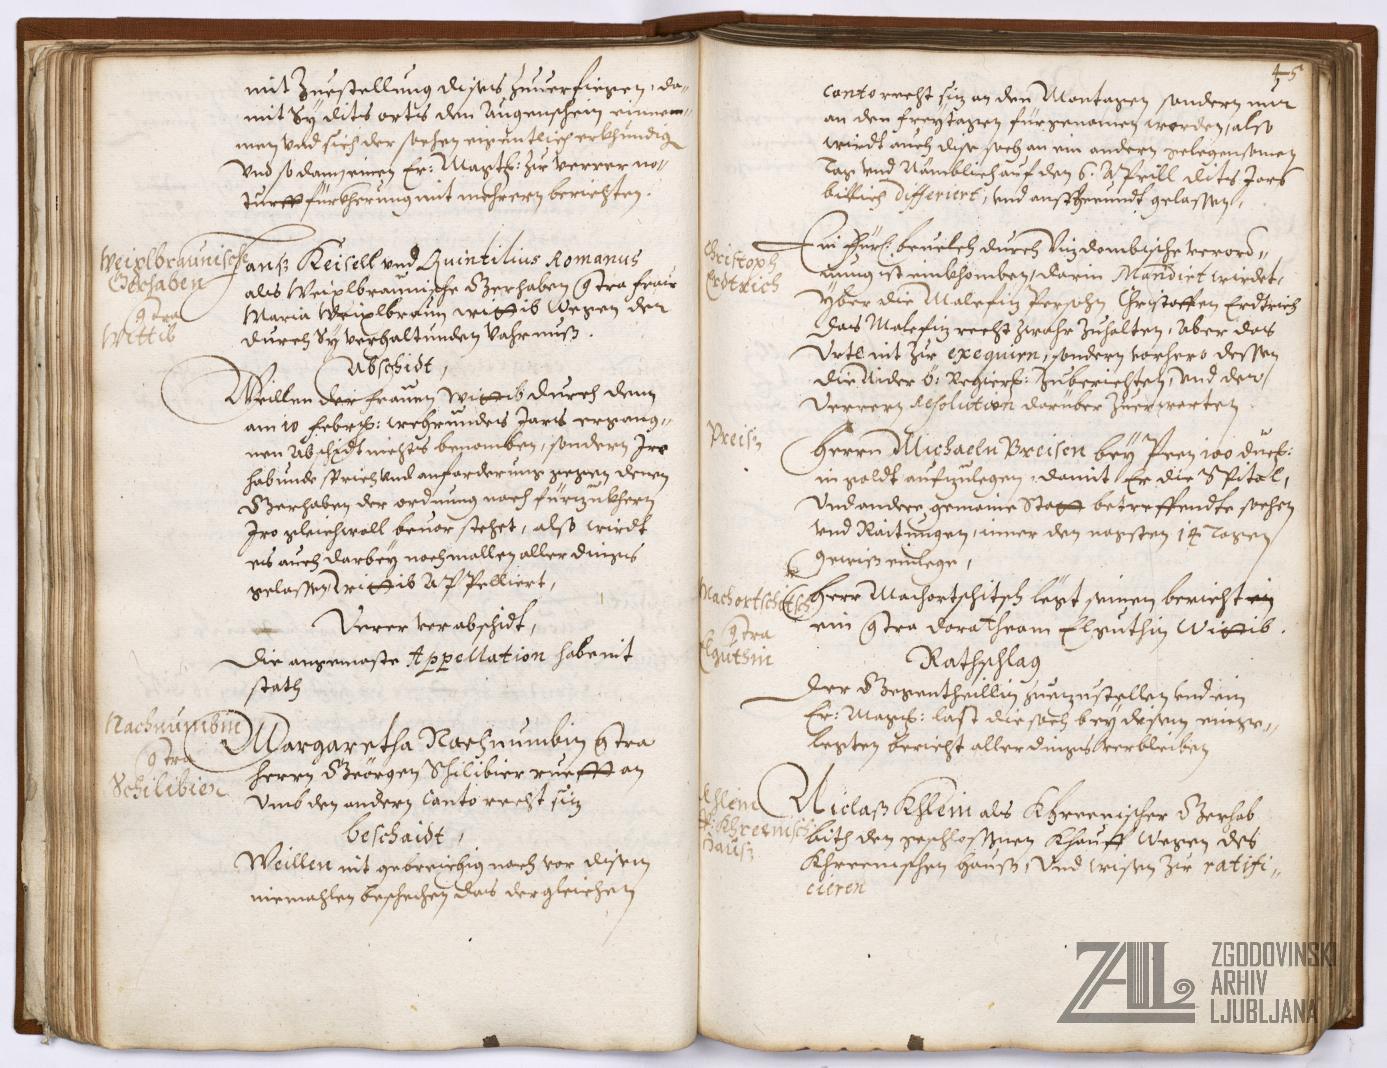 mit Zuestellung dises zuuerfiegen, da=
mit Sy dits orts den Augenschein einnem=
men vnd sich der sachen eigentlich erkhundig
vnd so dann einen Er: Magst: zu verrer no=
turfft fürkherung mit mehrern berichten.
Weixlbraunische
Gerhaben
contra
Wittib
Hanß Keisell vnd Quintilius Romanus
als Weixlbraunische Gerhaben contra Frau
Maria Weixlbraun wittib wegen der
durch Sy verhaltunden Vahrnuß.
Abschidt,
Weillen der frauen wittib durch dem
am 10 Febr: Jars ergang=
nen Abschidt nichts benomben, sondern Ire
habunde sprich vnd anforderung gegen denen
Gerhaben der ordnung nach fürzukhern
Iro gleichwoll beuor stehet, also wirdt
es auch darbey nochmallen aller dings
gelassen, wittib Appelliert,
Verer verabschidt,
Die angemaste Appellation habe nit
stath
Nachnumbin
contra
Schilibier
Margaretha Nachnumbin contra
Herrn Geörgen Schilibier ruefft an
vmb den andern Canto recht siz
beschaidt,
Weillen nit gebreichig noch vor disem
niemahlen beschechen das dergleichen
45
Canto recht siz an den Montagen sondern nur
an den freytagen fürgenomen worden, also
wirdt auch dise sach an ein andern gelegensamen
Tag vnd Nämblich auf den 6. Aprill dits Jars
billich differiert, vnd gelassen,
Christoph
Erdtrich
Ein fürl: beuelch durch Vizdombische verord=
nung ist einkhomben, darin Mandiert wirdet,
yber die Malefiz Persohn Christoffen Erdtrich
das Malefiz recht zwahr zuhalten, Aber das
Vrtl nit zu exequirn, sondern vorhero dessen
die Nider Ö: Regier: zuberichten, vnd der
verrern resolution darüber zuerwarten
Preisz
Herrn Michaeln Preisen bey Peen 100 duc:
in goldt aufzulegen, damit Er die Spital,
vnd andere gemaine Statt betreffendte sachen
vnd Raitungen, inner den negsten 14 Tagen
gewiß einlege,
Machortschitsch
contra
Elguthin
Herr Machortschitsch legt seinen bericht ein
ein contra Doratheam Elguthin Wittib.
Rathschlag
Der Gegentheillin zuezustellen vnd ein
Er: Magst: last die sach bey disem einge=
legten bericht allerdings verbleiben
Khlein
Khrenisch
Hauß
Niclaß Khlein als Khrenischer Gerhab
bith den geschloßnen Khauff wegen des
Khrenischen Hauß, vnd wisen zu ratifi=
cieren
ZAL
ZGODOVINSKI
ARHIV
LJUBLJANA